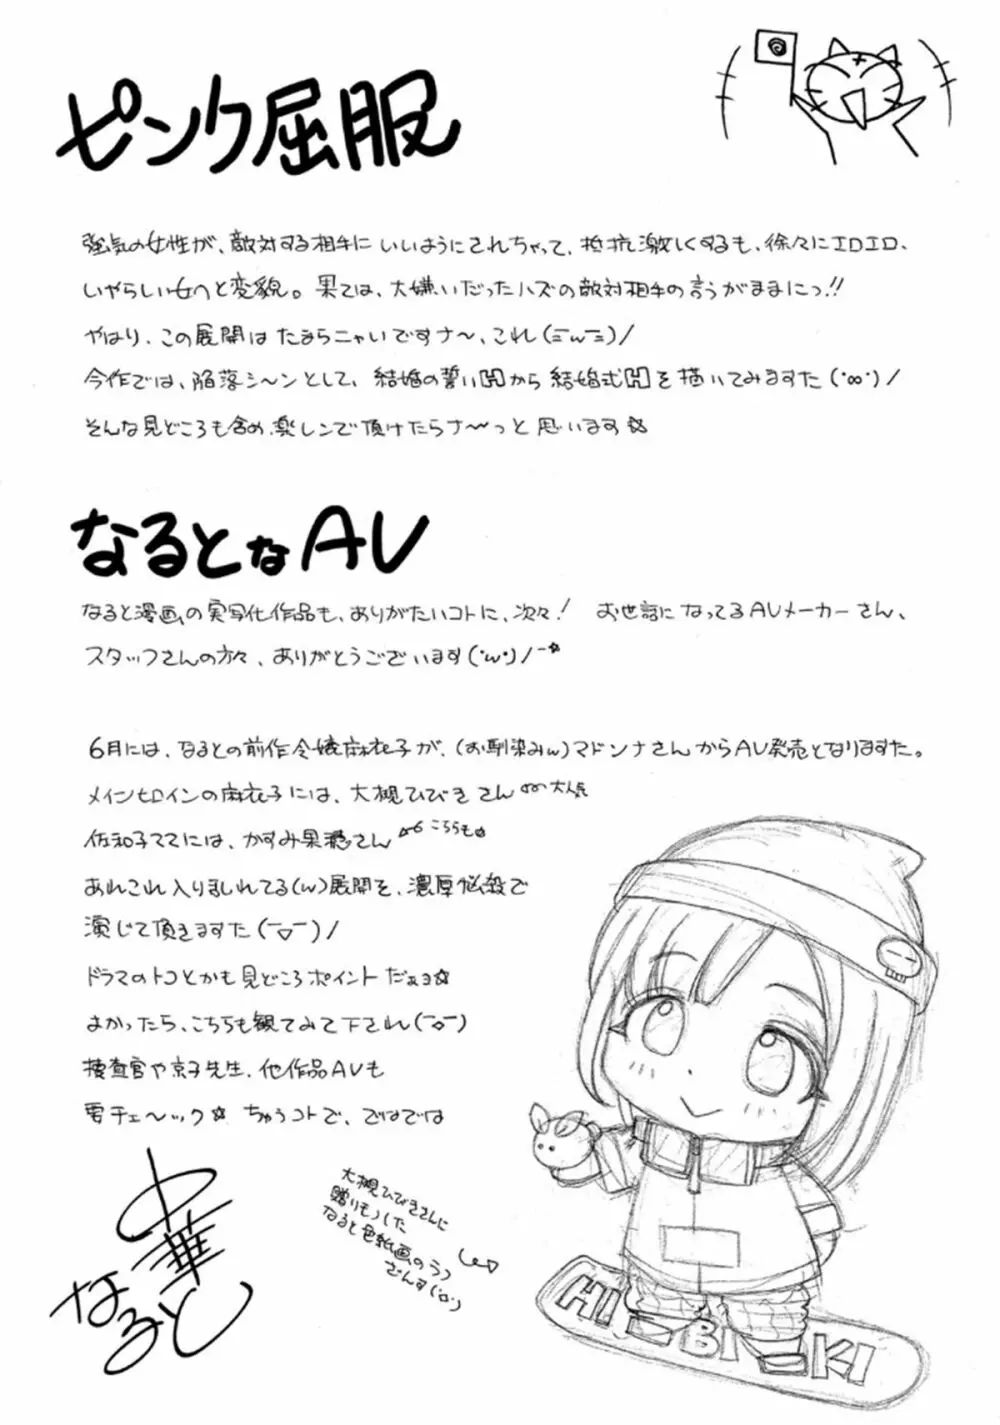 ピンク屈服
強気の女性が、敵対する相手にいいようにされちゃって、抵抗激しくするも、徐々にエロエロ、
いやらしい女へと変貌。果ては、大嫌いだったハズの敵対相手の言うがままにっ!!
やはり、この展開はたまらニャいですナ〜、これ(=w=)/
今作では、陥落シ〜ンとして、結婚の誓いHから結婚式Hを描いてみますた(･∞･)/
そんな見どころも含め、楽しンで頂けたらナ〜っと思います☆
なるとなAV
なると漫画の実写化作品も、ありがたいコトに、次々! お世話になってるAVメーカーさん、
スタッフさんの方々、ありがとうございます(･w･)/-☆
6月には、なるとの前作令嬢麻衣子が、(お馴染みw)マドンナさんからAV発売となりますた。
メインヒロインの麻衣子には、大槻ひびきさん 大人気
佐和子ママには、かすみ果穂さん こちらも☆
あれこれ入りましれてる(w)展開を、濃厚悩殺で
演じて頂きますた(￣▽￣)/
ドラマのトコとかも見どころポイントだぁョ☆
よかったら、こちらも観てみて下され(￣o￣)
捜査官や京子先生、他作品AVも
要チェ〜ック☆ ちゅうコトで、ではでは
中華
なると
大槻ひびきさんに
贈りもうした
なると色紙画のラフ
ざんす(･o･)
HIBIKI